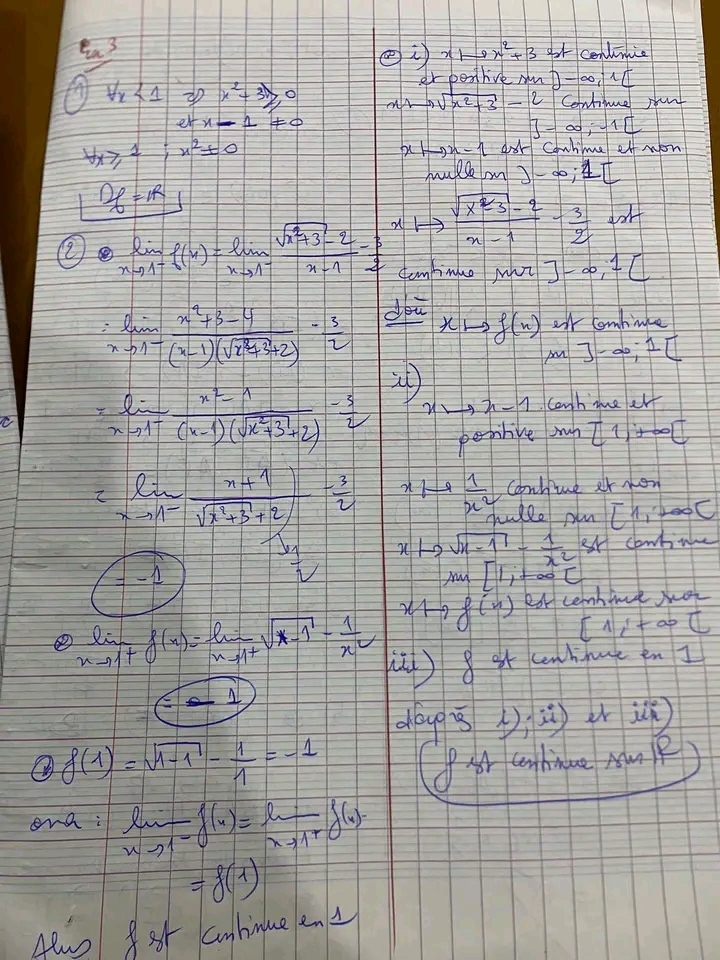 Ex 3
① ∀x < 1 ⇒ x²+3 ≥ 0
et x - 1 ≠ 0
∀x ≥ 1 ; x² ≠ 0
Df = ℝ
② • lim x→1⁻ f(x) = lim x→1⁻ (√(x²+3) - 2)/(x-1) - 3/2
= lim x→1⁻ (x²+3-4)/((x-1)(√(x²+3)+2)) - 3/2
= lim x→1⁻ (x²-1)/((x-1)(√(x²+3)+2)) - 3/2
= lim x→1⁻ (x+1)/(√(x²+3)+2) - 3/2
→ 1/2
= -1
• lim x→1⁺ f(x) = lim x→1⁺ √(x-1) - 1/x²
= - 1
• f(1) = √(1-1) - 1/1 = -1
ona : lim x→1⁻ f(x) = lim x→1⁺ f(x)
= f(1)
Alors f est continue en 1
• i) x ↦ x²+3 est continue
et positive sur ]-∞; 1[
x ↦ √(x²+3) - 2 continue sur
]-∞; 1[
x ↦ x-1 est continue et non
nulle sur ]-∞; 1[
x ↦ (√(x²-3) - 2)/(x-1) - 3/2 est
continue sur ]-∞; 1[
d'où x ↦ f(x) est continue
sur ]-∞; 1[
ii)
x ↦ x-1 continue et
positive sur [1; +∞[
x ↦ 1/x² continue et non
nulle sur [1; +∞[
x ↦ √(x-1) - 1/x² est continue
sur [1; +∞[
x ↦ f(x) est continue sur
[1; +∞[
iii) f est continue en 1
d'après i); ii) et iii)
f est continue sur ℝ